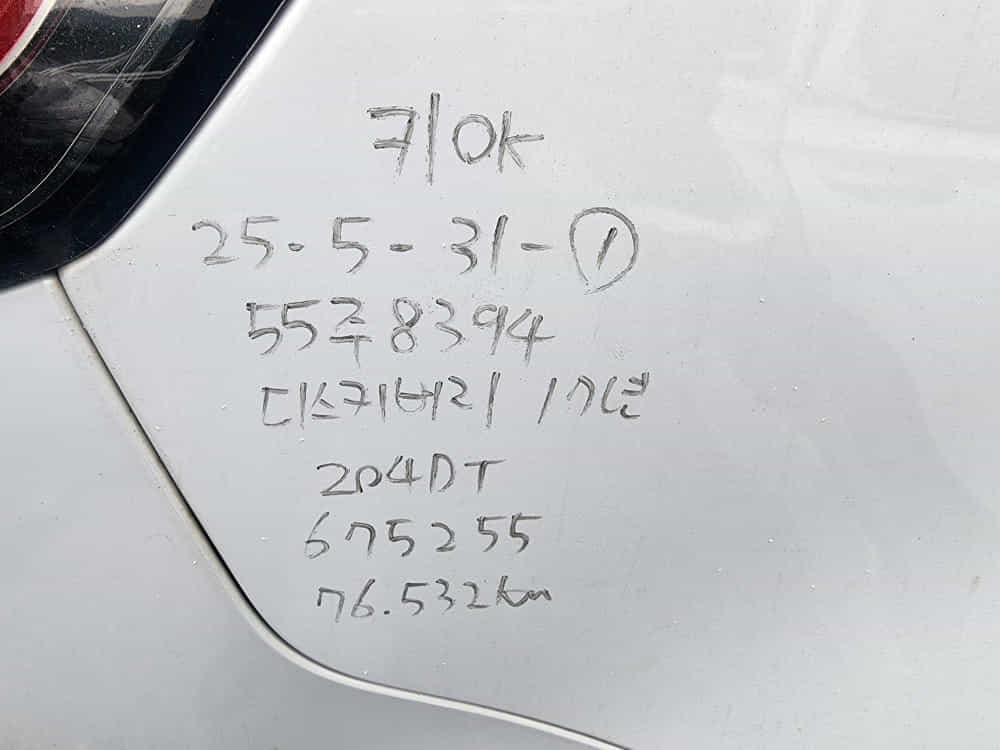 키OK
25-5-31-①
55주8394
디스커버리 17년
204DT
675255
76.532km